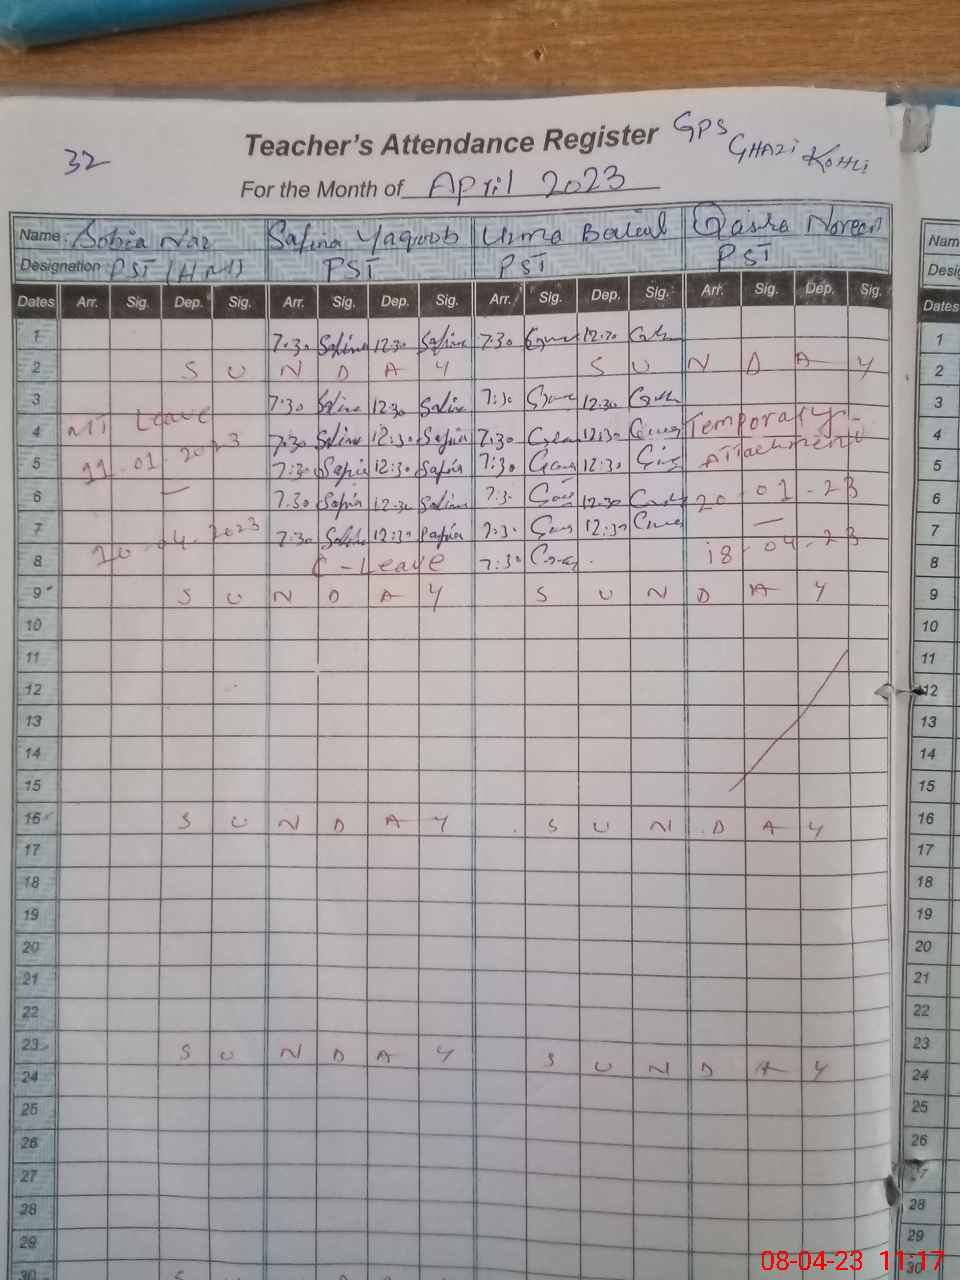 Teacher's Attendance Register GPS GHAZI KOHLI
32
For the Month of April 2023
Name: Sobia Naz Safina Yaqoob Uzma Qaisra Noreen
Designation PST (HM) PST PST PST
Dates Arr. Sig. Dep. Sig. Arr. Sig. Dep. Sig. Arr. Sig. Dep. Sig. Arr. Sig. Dep. Sig.
1 7:30 Safina 12:30 Safina 7:30 12:30
2 S U N D A Y S U N D A Y
3 7:30 Safina 12:30 Safina 7:30 12:30
MT Leave
4 7:30 Safina 12:30 Safina 7:30 12:30 Temporary
5 11-01-2023 7:30 Safina 12:30 Safina 7:30 12:30 Attachment
6 — 7:30 Safina 12:30 Safina 7:3. 12:30 20-01-23
7 10-04-2023 7:30 Safina 12:30 Safina 7:3. 12:30 —
8 C-Leave 7:30 18-04-23
9 S U N D A Y S U N D A Y
10
11
12
13
14
15
16 S U N D A Y S U N D A Y
17
18
19
20
21
22
23 S U N D A Y S U N D A Y
24
25
26
27
28
29
30
Nam
Desig
Dates
1
2
3
4
5
6
7
8
9
10
11
12
13
14
15
16
17
18
19
20
21
22
23
24
25
26
28
29
30
08-04-23 11:17